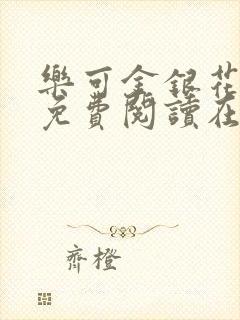 樂可金銀花
免費閱讀在
齊橙